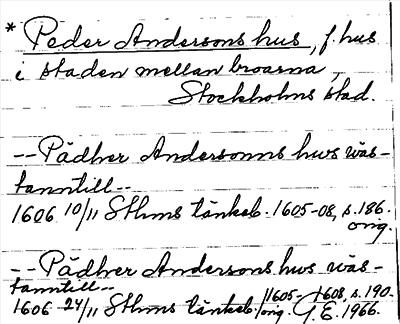 * Peder Anderssons hus, f. hus
i staden mellan broarna,
Stockholms stad.
-- Pädher Anderssonns hws wäs-
tanntill --
1606 10/11 Sthms tänkeb. 1605-08, s. 186.
orig.
-- Pädher Anderssons hws wäs-
tanntill --
1606 24/11 Sthms tänkeb. 1605-1608, s. 190.
orig. G.E. 1966.